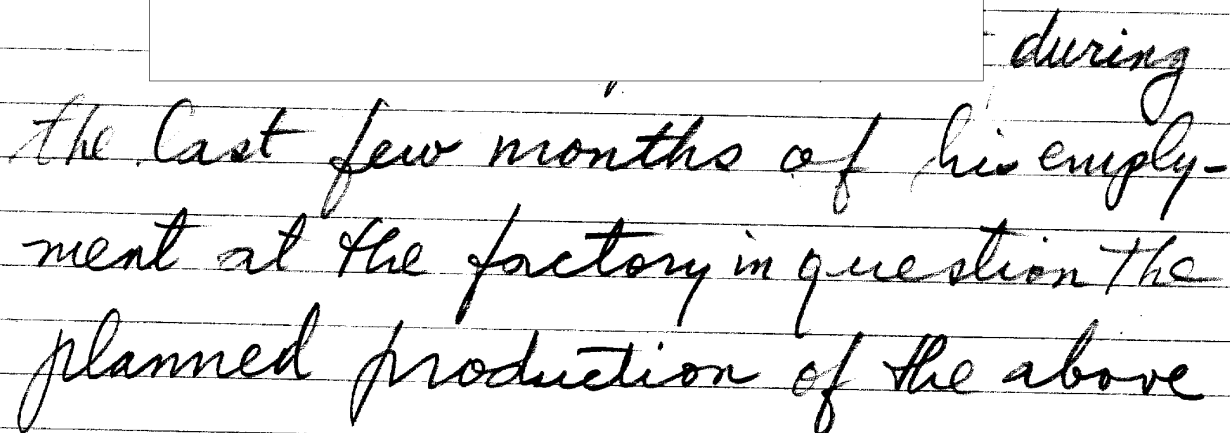 during
the last few months of his emply-
ment at the factory in question the
planned production of the above